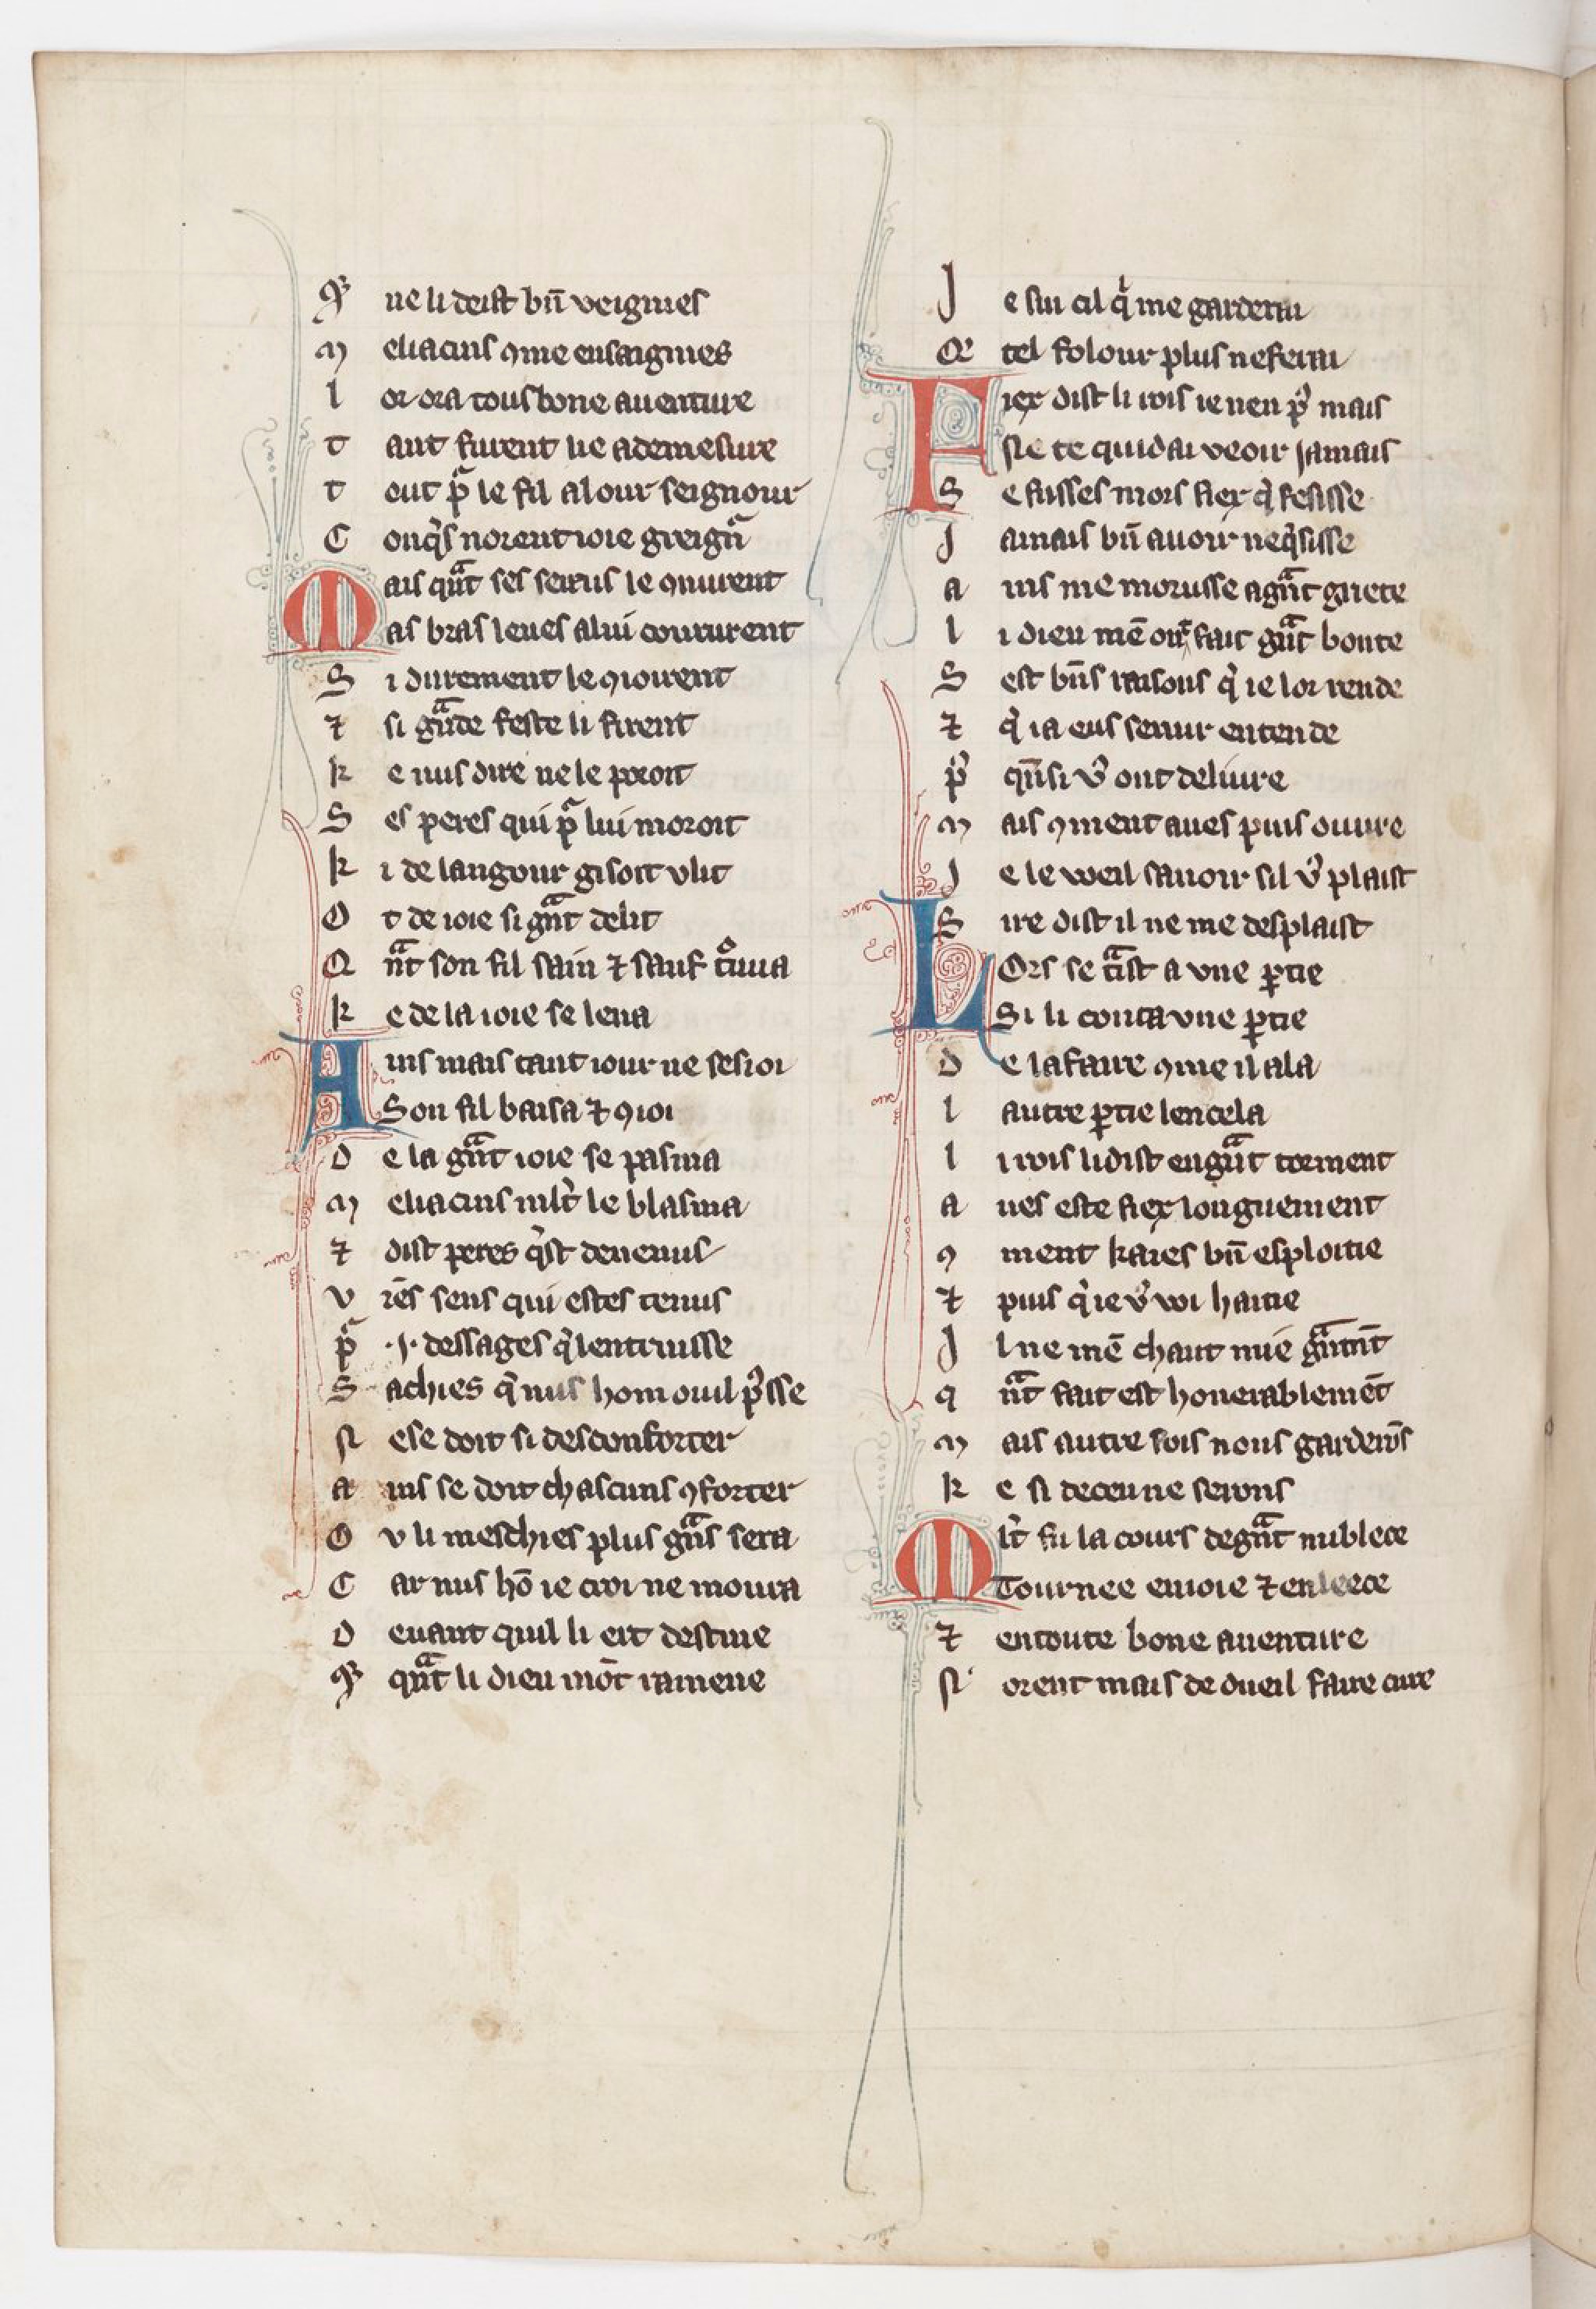 Q' ue li deist bn̄ veignies
M eliacins 9me ensaignies
l or ora tous bone auenture
t ant furent lie a demesure
t out pͣ le fil a lour seignour
C onq̄s norent ioie greignͣ
M ais qͣnt ses serans le 9nurent
as bras leues a lui coururent
S i durement le 9ioirent
⁊ si gͣnde feste li firent
k e nus dire ne le poroit
S es peres qui pͣ lui moroit
k i de langour gisoit v lit
O t de ioie si gͣnt delit
Q ͣnt son fil sain ⁊ sauf tͦuua
k e de la ioie se leua
A ins mais tant iour ne sesioi
Son fil baisa ⁊ 9ioi
D e la gͣnt ioie se pasma
M eliacins mlt' le blasma
⁊ dist peres q̓st deuenus
V r̄es sens qui estes tenus
pͣ .j. des sages q̓ lent truisse
S achies q̓ nus hom ou il pͥsse
N e se doit si desconforter
A ins se doit chascuns 9forter
O v li meschies plus gͣns sera
C ar nus hō ie croi ne moura
D euant quil li ert destine
Q' qͣnt li dieu mōt ramene
J e sui cil qͥ me garderai
Q' tel folour plus ne ferai
F iex dist li rois ie nen pͦ mais
Ne te quidai veoir jamais
S e fusses mors fiex q̓ fesisse
J amais bn̄ auoir ne q̓sisse
a ins me morusse a gͣnt griete
l i dieu mē ont fait gͣnt bonte
S est bn̄s raisons q̓ ie lor rende
⁊ q̓ ia eus seruir entende
pͦ qn̄si vͦ ont deliure
M ais 9ment aues puis ouure
J e le weil sauoir sil vͦ plaist
S ire dist il ne me desplaist
L Ors se tͣist a vne ꝑtie
Si li conta vne ꝑtie
D e lafaire 9me il ala
l autre ꝑtie len cela
l i rois li dist en gͣnt torment
a ues este fiex longuement
9 ment kaies bn̄ esploitie
⁊ puis q̓ ie vͦ voi haitie
J l ne mē chaut mie gͣnmt̄
q ͣnt fait est honerablemēt
M ais autre fois nous garderōs
k e si deceu ne serons
M lt' fu la cours de gͣnt nublece
Tournee en ioie ⁊ en leece
⁊ en toute bone auenture
N' orent mais de dueil faire cure